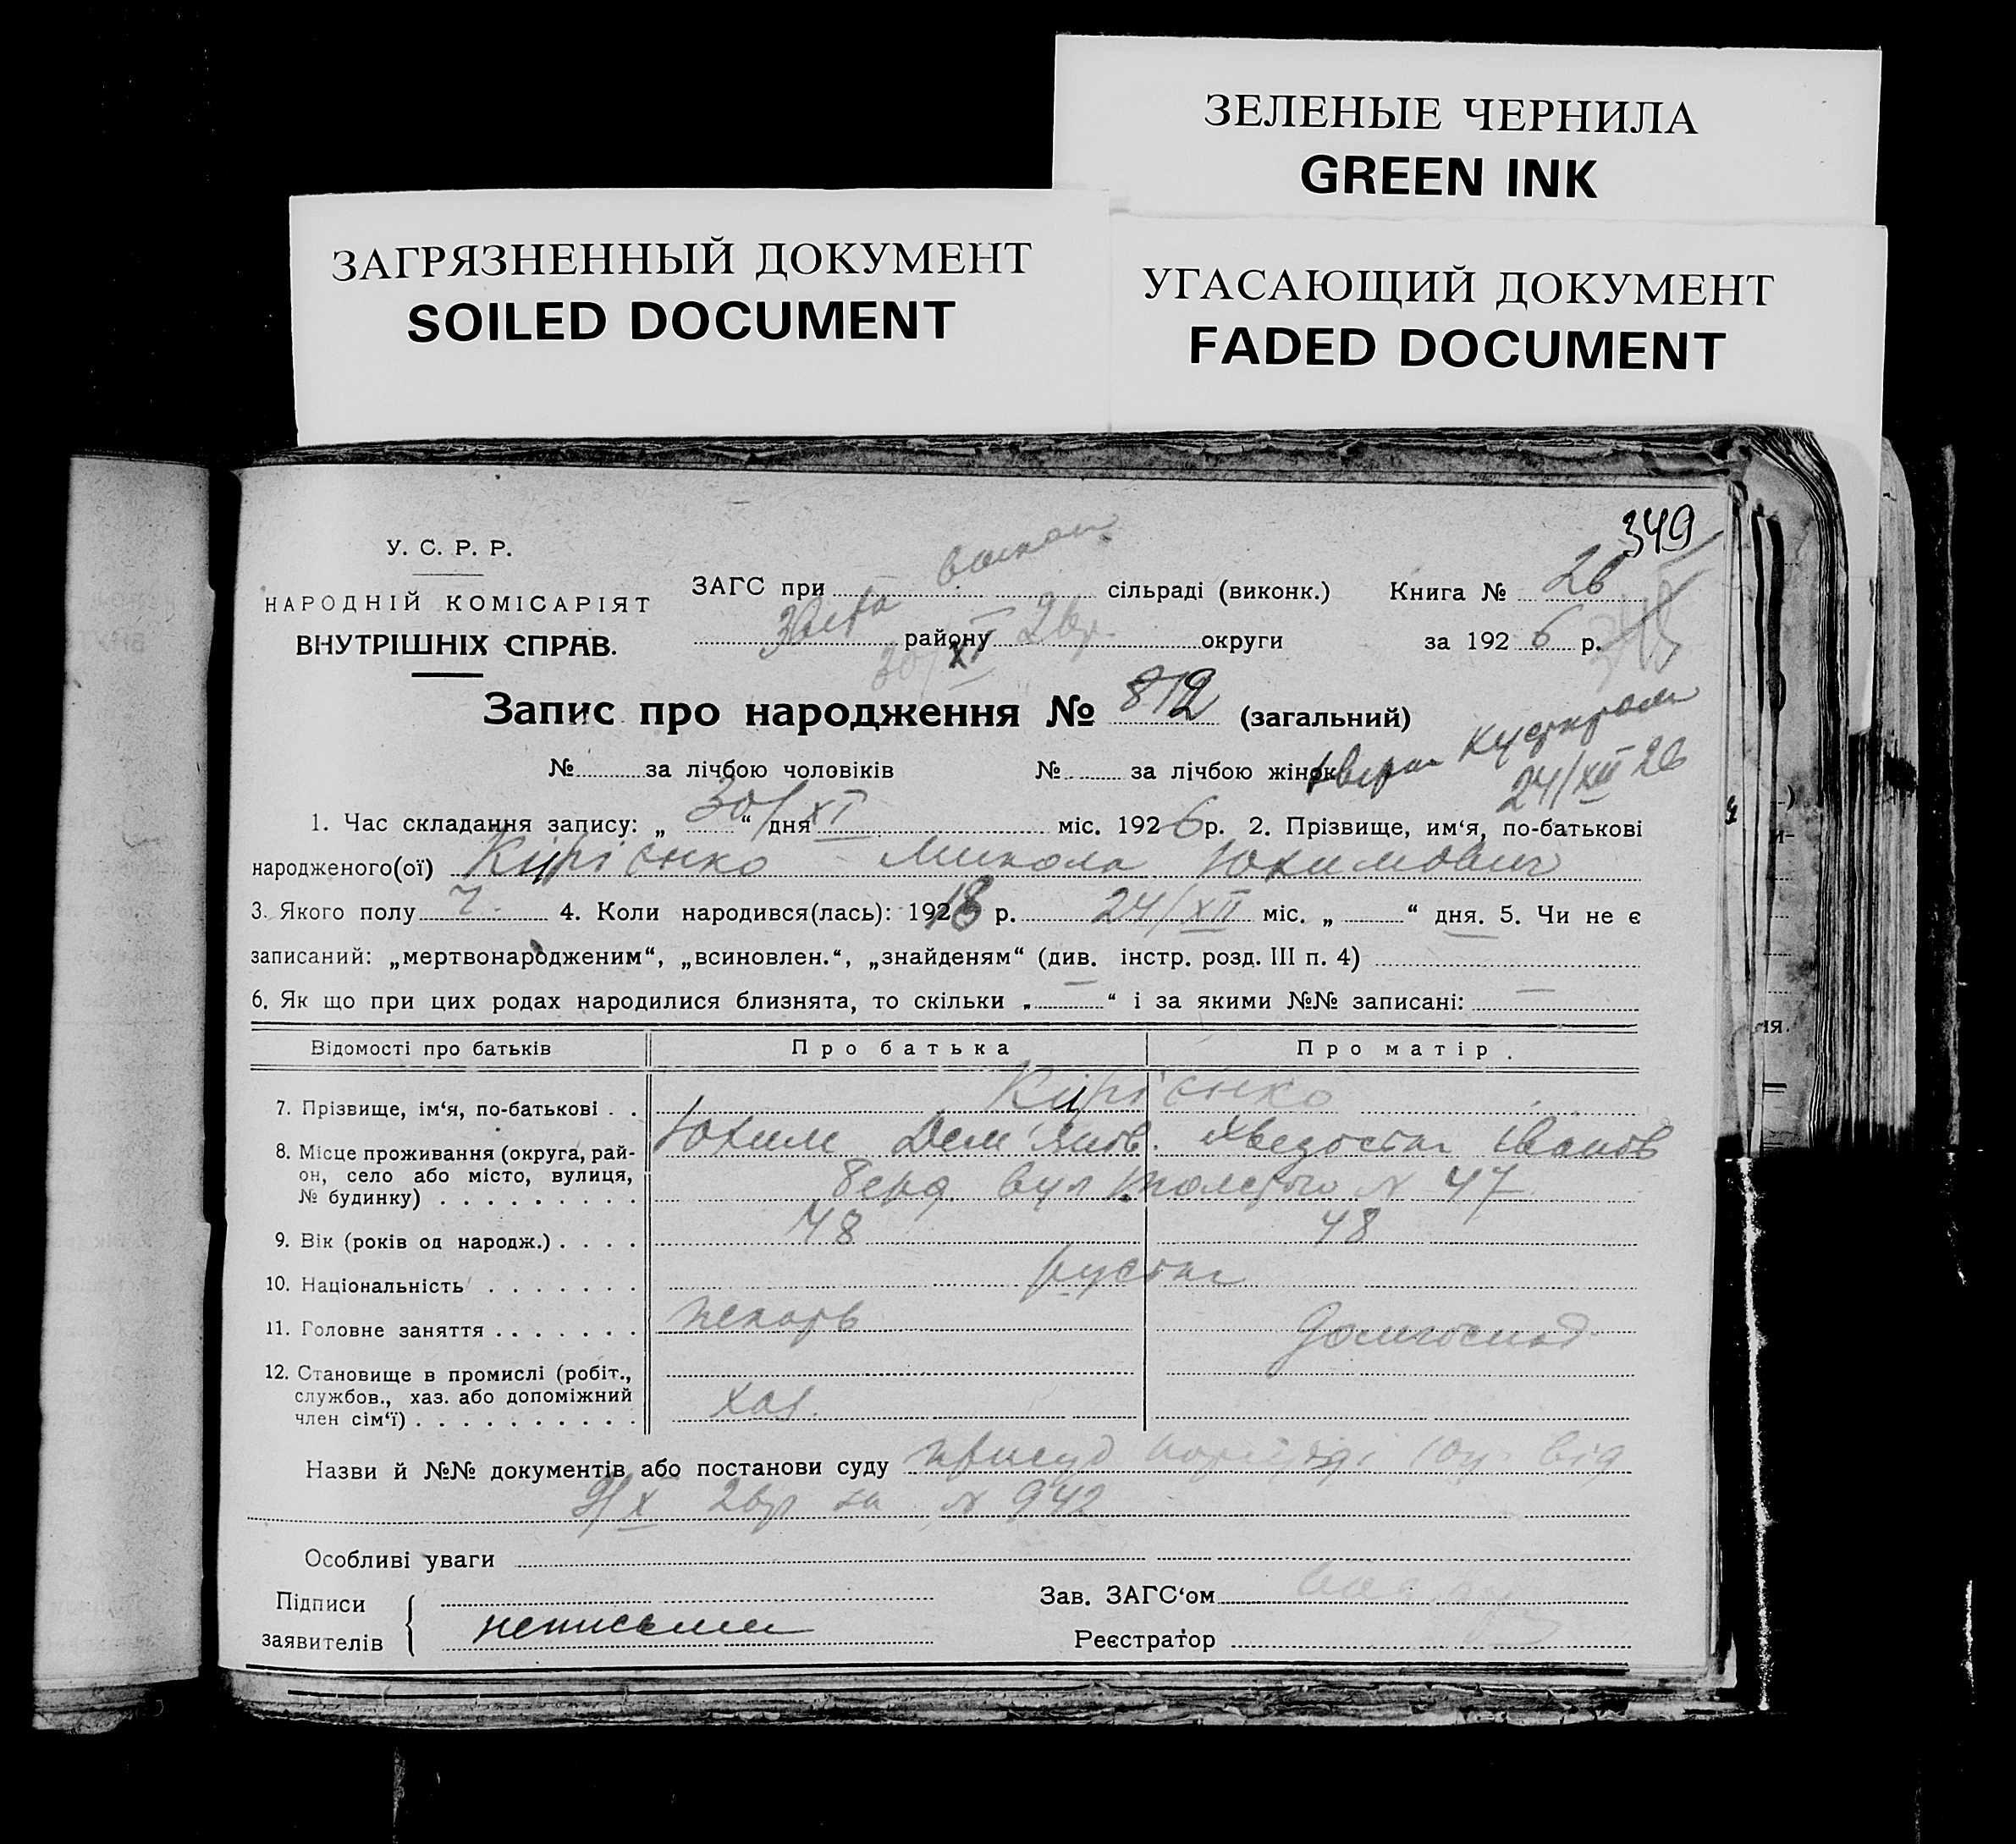 ЗЕЛЕНЫЕ ЧЕРНИЛА
GREEN INK
ЗАГРЯЗНЕННЫЙ ДОКУМЕНТ
SOILED DOCUMENT
УГАСАЮЩИЙ ДОКУМЕНТ
FADED DOCUMENT
349
У. С. Р. Р.
НАРОДНІЙ КОМІСАРІЯТ
ВНУТРІШНІХ СПРАВ.
ЗАГС при сільраді (виконк.) Книга № 26
району округи за 1926 р.
30/XI 26р.
Запис про народження № 812 (загальний)
№ за лічбою чоловіків № за лічбою жінок
24/XII 26
1. Час складання запису: „ 30/ “ дня XI міс. 1926 р. 2. Прізвище, им‘я, по-батькові
народженого(ої) Кирієнко Микола Юхимович
3. Якого полу ч. 4. Коли народився(лась): 1918 р. 24/XII міс. „ “ дня. 5. Чи не є
записаний: „мертвонародженим“, „всиновлен.“, „знайденям“ (див. інстр. розд. III п. 4) —
6. Як що при цих родах народилися близнята, то скільки „ “ і за якими №№ записані: —
Відомості про батьків Про батька Про матір.
7. Прізвище, ім‘я, по-батькові . . Кирієнко
Юхим Дем‘янов. Іванов
8. Місце проживання (округа, рай-
он, село або місто, вулиця,
№ будинку) . . . . . . . . . Берд. вул Толстого № 47
9. Вік (років од народж.) . . . . 48 48
10. Національність . . . . . . .
11. Головне заняття . . . . . . . пекарь домгоспод.
12. Становище в промислі (робіт.,
службов., хаз. або допоміжний
член сім‘ї) . . . . . . . . . . хаз.
Назви й №№ документів або постанови суду присуд від
9/X 26р за № 942
Особливі уваги
Підписи
заявителів неписьмен
Зав. ЗАГС‘ом
Реєстратор